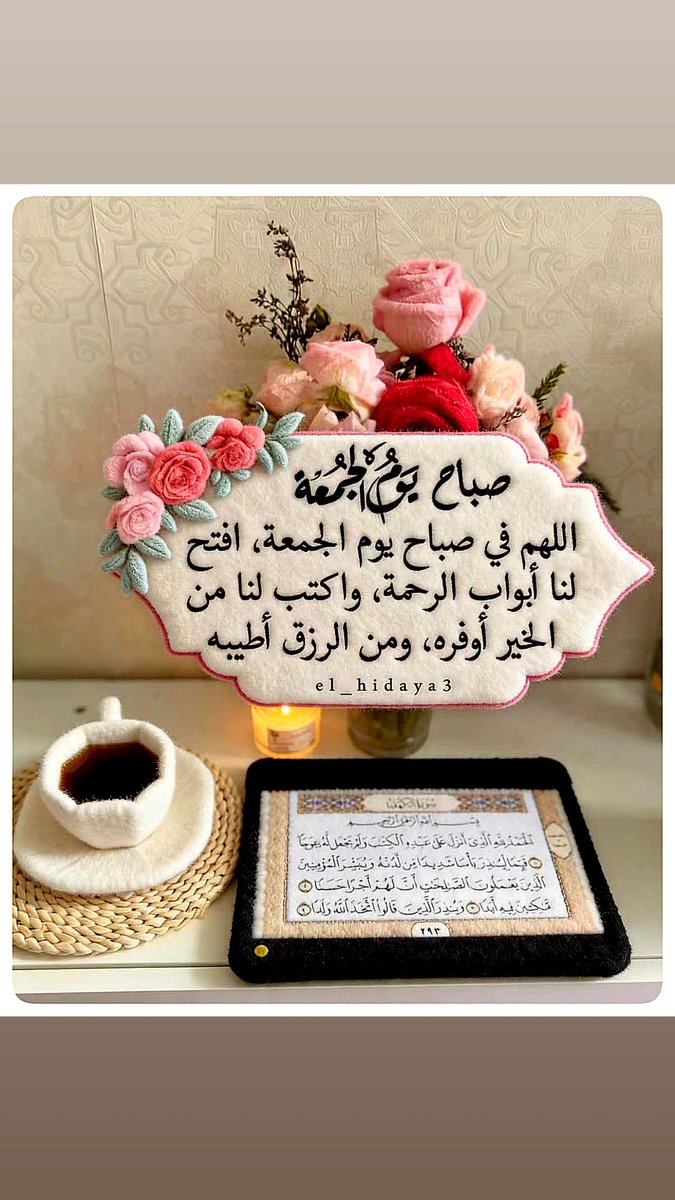 صباح يَومُ الجُمعة
اللهم في صباح يوم الجمعة، افتح
لنا أبواب الرحمة، واكتب لنا من
الخير أوفره، ومن الرزق أطيبه
el_hidaya3
سورة الكهف
بسم الله الرحمن الرحيم
الذي أنزل على عبده الكتب ولم يجعل له عوجا
من لدنه ويبشر المؤمنين
الذين يعملون الصلحت أن لهم أجرا حسنا
فيه أبدا وينذر الذين قالوا اتخذ الله ولدا
٢٩٣